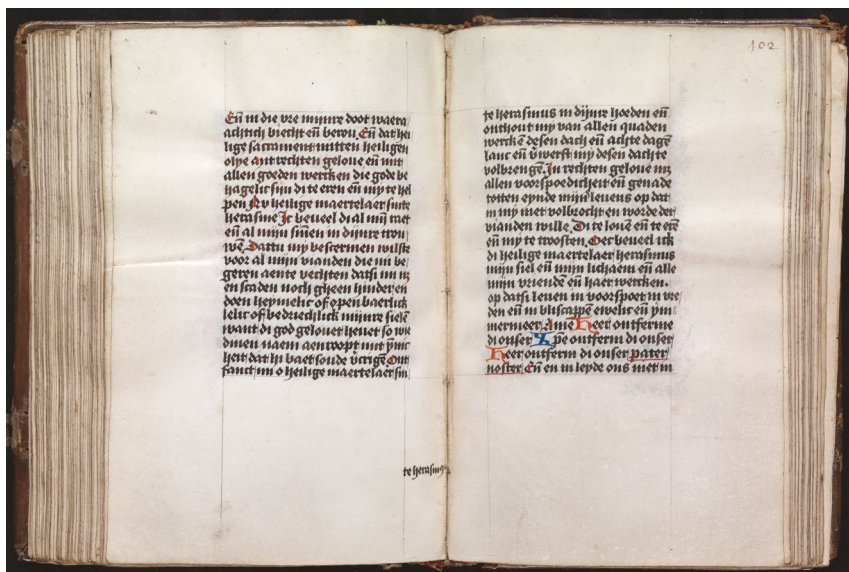 Eñ in die vre mijnre doot waera
achtich biecht eñ berou. Eñ dat hei
lige sacrament mitten heiligen
olye Ant rechten geloue eñ mit
allen goeden wercken die gode be
hagelic sijn di te eren eñ my te hel
pen Ay heilige maertelaer sinte
herasme Ic beueel di al mijn raet
eñ al mijn sinnen in dijnre trou
wē. Dattu my bestermen wilste
voor al mijn vianden die mi be
geren aente vechten datsi mi n
en scaden noch gheen hinder en
doen heymelic of openbaerlick
lelic of bedriechlick mijnre sielē
want di god gelouet heuet so wie
dinen naem aenroopt mit ynnic
heit dat hi baet soude v'crigē Ont
fanct mi o heilige maertelaer sin
te herasmus
102
te herasmus in dijnre hoeden eñ
onthout my van allen quaden
wercken desen dach eñ achte dagē
lanc eñ v'werft my desen dach te
volbrengē. In rechten geloue in
allen voorspoedicheit eñ genade
totten eynde mijns leuens op dat
in my niet volbrocht en worde der
vianden wille. Di te louen eñ te eren
eñ my te troosten. Oec beueel ick
di heilige maertelaer herasmus
mijn siel eñ mijn lichaem eñ alle
mijn vrienden eñ haer wercken.
op datsi leuen in voorspoet in vre
den eñ in bliscappen ewelic eñ ym
mermeer Amē Heer ontferme
di onser Xpē ontferm di onser
Heer ontferm di onser pater
noster. Eñ en in leyde ons niet in